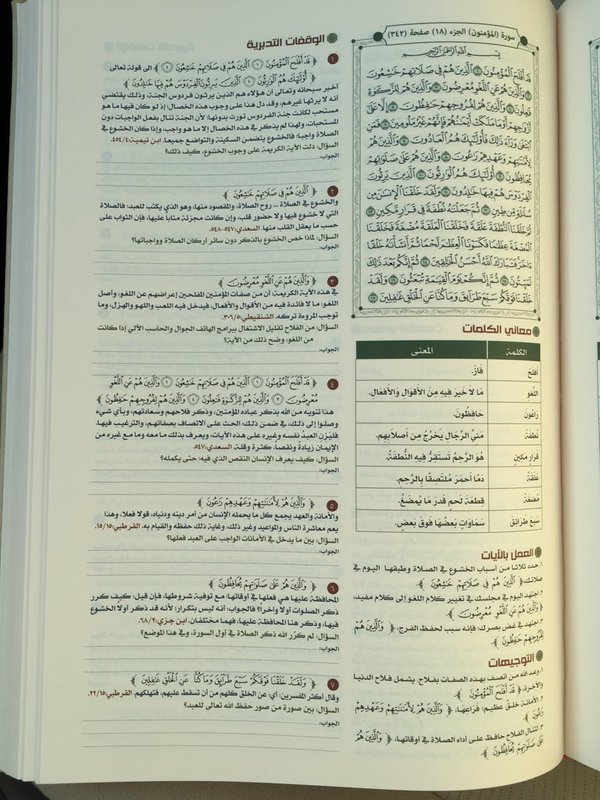 سورة (المؤمنون) الجزء (١٨) صفحة (٣٤٢)
بِسْمِ اللَّهِ الرَّحْمَٰنِ الرَّحِيمِ
قَدْ أَفْلَحَ الْمُؤْمِنُونَ ١ الَّذِينَ هُمْ فِي صَلَاتِهِمْ خَاشِعُونَ
٢ وَالَّذِينَ هُمْ عَنِ اللَّغْوِ مُعْرِضُونَ ٣ وَالَّذِينَ هُمْ لِلزَّكَاةِ
فَاعِلُونَ ٤ وَالَّذِينَ هُمْ لِفُرُوجِهِمْ حَافِظُونَ ٥ إِلَّا عَلَىٰ
أَزْوَاجِهِمْ أَوْ مَا مَلَكَتْ أَيْمَانُهُمْ فَإِنَّهُمْ غَيْرُ مَلُومِينَ ٦ فَمَنِ
ابْتَغَىٰ وَرَاءَ ذَٰلِكَ فَأُولَٰئِكَ هُمُ الْعَادُونَ ٧ وَالَّذِينَ هُمْ
لِأَمَانَاتِهِمْ وَعَهْدِهِمْ رَاعُونَ ٨ وَالَّذِينَ هُمْ عَلَىٰ صَلَوَاتِهِمْ
يُحَافِظُونَ ٩ أُولَٰئِكَ هُمُ الْوَارِثُونَ ١٠ الَّذِينَ يَرِثُونَ
الْفِرْدَوْسَ هُمْ فِيهَا خَالِدُونَ ١١ وَلَقَدْ خَلَقْنَا الْإِنسَانَ مِن
سُلَالَةٍ مِّن طِينٍ ١٢ ثُمَّ جَعَلْنَاهُ نُطْفَةً فِي قَرَارٍ مَّكِينٍ ١٣
ثُمَّ خَلَقْنَا النُّطْفَةَ عَلَقَةً فَخَلَقْنَا الْعَلَقَةَ مُضْغَةً فَخَلَقْنَا
الْمُضْغَةَ عِظَامًا فَكَسَوْنَا الْعِظَامَ لَحْمًا ثُمَّ أَنشَأْنَاهُ خَلْقًا
آخَرَ فَتَبَارَكَ اللَّهُ أَحْسَنُ الْخَالِقِينَ ١٤ ثُمَّ إِنَّكُم بَعْدَ ذَٰلِكَ
لَمَيِّتُونَ ١٥ ثُمَّ إِنَّكُمْ يَوْمَ الْقِيَامَةِ تُبْعَثُونَ ١٦ وَلَقَدْ
خَلَقْنَا فَوْقَكُمْ سَبْعَ طَرَائِقَ وَمَا كُنَّا عَنِ الْخَلْقِ غَافِلِينَ ١٧
معاني الكلمات
الكلمة المعنى
أَفْلَحَ فَازَ.
اللَّغْوِ مَا لَا خَيْرَ فِيهِ مِنَ الأَقْوَالِ وَالأَفْعَالِ.
رَاعُونَ حَافِظُونَ.
نُطْفَةً مَنِيَّ الرِّجَالِ يَخْرُجُ مِنْ أَصْلَابِهِم.
قَرَارٍ مَكِينٍ هُوَ الرَّحِمُ تَسْتَقِرُّ فِيهِ النُّطْفَةُ.
عَلَقَةً دَمًا أَحْمَرَ مُلْتَصِقًا بِالرَّحِمِ.
مُضْغَةً قِطْعَةَ لَحْمٍ قَدْرَ مَا يُمْضَغُ.
سَبْعَ طَرَائِقَ سَمَاوَاتٍ بَعْضُهَا فَوْقَ بَعْضٍ.
العمل بالآيات
١. حدد ثلاثا من أسباب الخشوع في الصلاة وطبقها اليوم في
صلاتك، ﴿ الَّذِينَ هُمْ فِي صَلَاتِهِمْ خَاشِعُونَ ﴾.
٢. اجتهد اليوم في مجلسك في تغيير كلام اللغو إلى كلام مفيد،
﴿ وَالَّذِينَ هُمْ عَنِ اللَّغْوِ مُعْرِضُونَ ﴾.
٣. اجتهد في غض بصرك؛ فإنه سبب لحفظ الفرج، ﴿ وَالَّذِينَ هُمْ
لِفُرُوجِهِمْ حَافِظُونَ ﴾.
التوجيهات
١. وعد الله من اتصف بهذه الصفات بفلاح يشمل فلاح الدنيا
والآخرة، ﴿ قَدْ أَفْلَحَ الْمُؤْمِنُونَ ﴾.
٢. الأمانة خلق عظيم؛ فراعها، ﴿ وَالَّذِينَ هُمْ لِأَمَانَاتِهِمْ وَعَهْدِهِمْ
رَاعُونَ ﴾.
٣. لتنال الفلاح حافظ على أداء الصلاة في أوقاتها، ﴿ وَالَّذِينَ هُمْ
عَلَىٰ صَلَوَاتِهِمْ يُحَافِظُونَ ﴾.
الوقفات التدبرية
١
﴿ قَدْ أَفْلَحَ الْمُؤْمِنُونَ ١ الَّذِينَ هُمْ فِي صَلَاتِهِمْ خَاشِعُونَ ٢ ﴾ إلى قوله تعالى
﴿ أُولَٰئِكَ هُمُ الْوَارِثُونَ ١٠ الَّذِينَ يَرِثُونَ الْفِرْدَوْسَ هُمْ فِيهَا خَالِدُونَ ﴾
أخبر سبحانه وتعالى أن هؤلاء هم الذين يرثون فردوس الجنة، وذلك يقتضي
أنه لا يرثها غيرهم، وقد دل هذا على وجوب هذه الخصال؛ إذ لو كان فيها ما هو
مستحب لكانت جنة الفردوس تورث بدونها؛ لأن الجنة تنال بفعل الواجبات دون
المستحبات، ولهذا لم يذكر في هذه الخصال إلا ما هو واجب، وإذا كان الخشوع في
الصلاة واجبا؛ فالخشوع يتضمن السكينة والتواضع جميعا. ابن تيمية:٤/٤٥٤.
السؤال: دلت الآية الكريمة على وجوب الخشوع، كيف ذلك؟
الجواب:
٢
﴿ الَّذِينَ هُمْ فِي صَلَاتِهِمْ خَاشِعُونَ ﴾
والخشوع في الصلاة ... روح الصلاة، والمقصود منها، وهو الذي يكتب للعبد؛ فالصلاة
التي لا خشوع فيها ولا حضور قلب، وإن كانت مجزئة مثاباً عليها، فإن الثواب على
حسب ما يعقل القلب منها. السعدي:٥٤٧-٥٤٨.
السؤال: لماذا خص الخشوع بالذكر دون سائر أركان الصلاة وواجباتها؟
الجواب:
٣
﴿ وَالَّذِينَ هُمْ عَنِ اللَّغْوِ مُعْرِضُونَ ﴾
في هذه الآية الكريمة: أن من صفات المؤمنين المفلحين إعراضهم عن اللغو، وأصل
اللغو: ما لا فائدة فيه من الأقوال والأفعال، فيدخل فيه اللعب واللهو والهزل، وما
توجب المروءة تركه. الشنقيطي:٣٠٦/٥.
السؤال: من الفلاح تقليل الاشتغال ببرامج الهاتف الجوال والحاسب الآلي إذا كانت
من اللغو، وضح ذلك من الآية؟
الجواب:
٤
﴿ قَدْ أَفْلَحَ الْمُؤْمِنُونَ ١ الَّذِينَ هُمْ فِي صَلَاتِهِمْ خَاشِعُونَ ٢ وَالَّذِينَ هُمْ عَنِ اللَّغْوِ
مُعْرِضُونَ ٣ وَالَّذِينَ هُمْ لِلزَّكَاةِ فَاعِلُونَ ٤ وَالَّذِينَ هُمْ لِفُرُوجِهِمْ حَافِظُونَ ﴾
هذا تنويه من الله بذكر عباده المؤمنين، وذكر فلاحهم وسعادتهم، وبأي شيء
وصلوا إلى ذلك، في ضمن ذلك: الحث على الاتصاف بصفاتهم، والترغيب فيها،
فليزن العبد نفسه وغيره على هذه الآيات، ويعرف بذلك ما معه وما مع غيره من
الإيمان زيادة ونقصاً، كثرة وقلة. السعدي:٥٤٧.
السؤال: كيف يعرف الإنسان النقص الذي فيه؛ حتى يكمله؟
الجواب:
٥
﴿ وَالَّذِينَ هُمْ لِأَمَانَاتِهِمْ وَعَهْدِهِمْ رَاعُونَ ﴾
والأمانة والعهد يجمع كل ما يحمله الإنسان من أمر دينه ودنياه؛ قولا فعلا، وهذا
يعم معاشرة الناس والمواعيد وغير ذلك، وغاية ذلك حفظه والقيام به. القرطبي:١٥/١٥.
السؤال: بين ما يدخل في الأمانات الواجب على العبد فعلها؟
الجواب:
٦
﴿ وَالَّذِينَ هُمْ عَلَىٰ صَلَوَاتِهِمْ يُحَافِظُونَ ﴾
المحافظة عليها هي فعلها في أوقاتها، مع توفية شروطها، فإن قيل: كيف كرر
ذكر الصلوات أولا وآخراً؟ فالجواب: أنه ليس بتكرار؛ لأنه قد ذكر أولا الخشوع
فيها، وذكر هنا المحافظة عليها، فهما مختلفان. ابن جزي:٦٨/٢.
السؤال: لم كرّر الله ذكر الصلاة في أول السورة، وفي هذا الموضع؟
الجواب:
٧
﴿ وَلَقَدْ خَلَقْنَا فَوْقَكُمْ سَبْعَ طَرَائِقَ وَمَا كُنَّا عَنِ الْخَلْقِ غَافِلِينَ ﴾
وقال أكثر المفسرين: أي: عن الخلق كلهم من أن تسقط عليهم، فتهلكهم. القرطبي:٢٢/١٥.
السؤال: بين صورة من صور حفظ الله تعالى للعبد؟
الجواب: